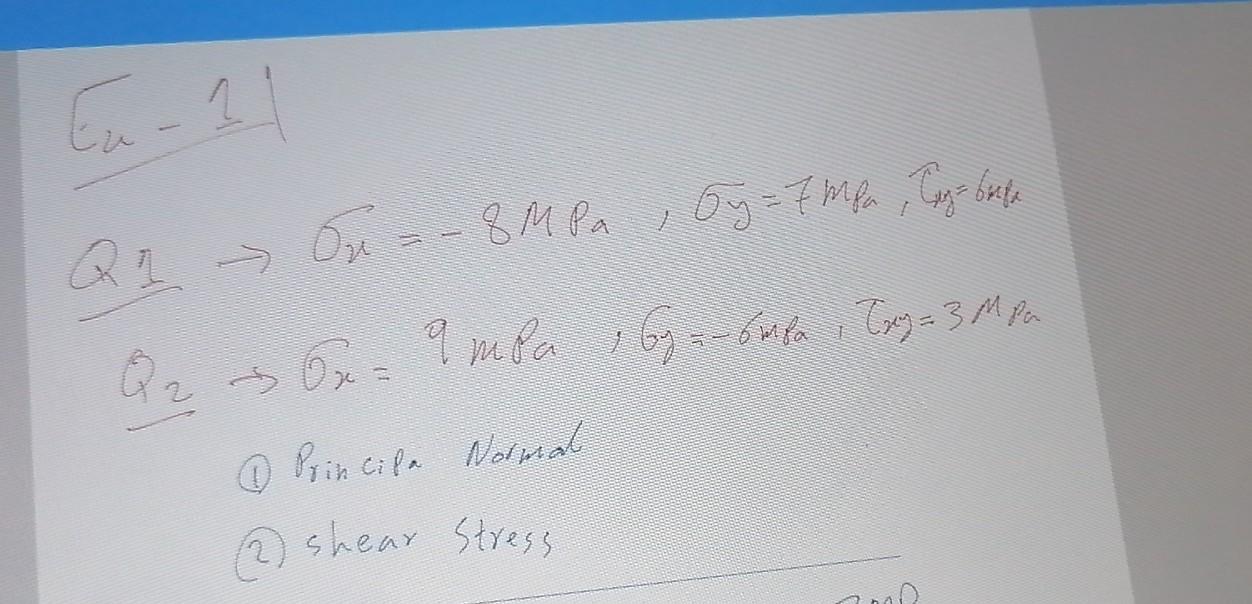 Ex - 1
Q1 → σx = - 8 MPa , σy = 7 mPa , τxy = 6 mPa
Q2 → σx = 9 mPa , σy = - 6 mPa , τxy = 3 MPa
① Principa Normal
② Shear Stress